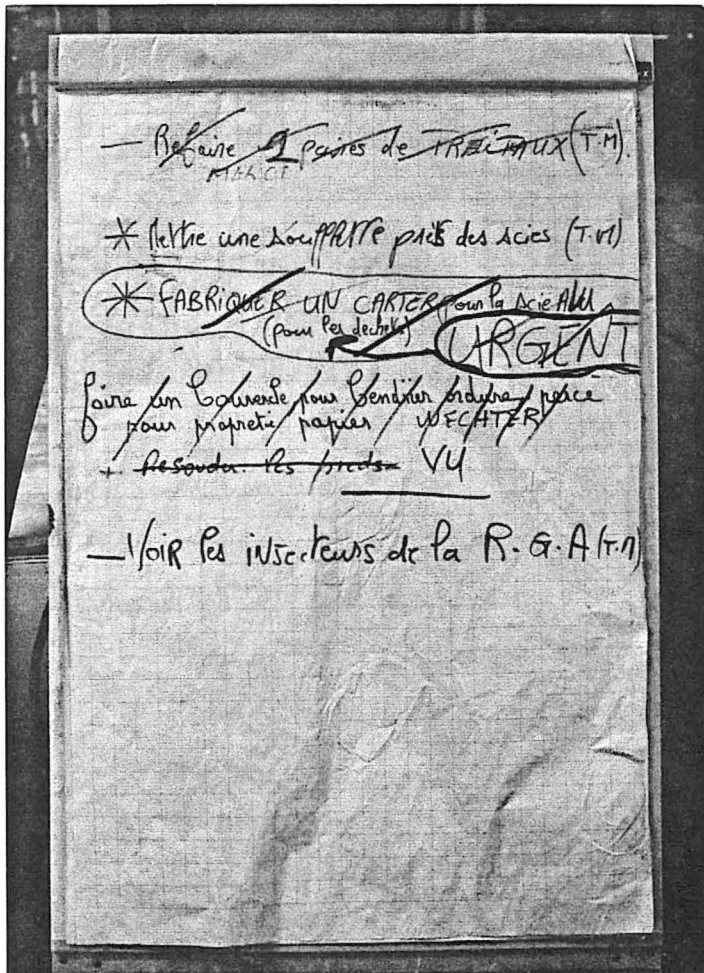 — Refaire 2 paires de TRETEAUX (T.M).
MERCI
* Mettre une soufflette près des scies (T.M)
* FABRIQUER UN CARTER pour la scie ALU
(pour les dechets) URGENT
faire un Couvercle pour Cendrier ordure percé
pour propreté papier WECHTER
+ Resouder les pieds VU
— VOIR les injecteurs de la R.G.A (T.M)